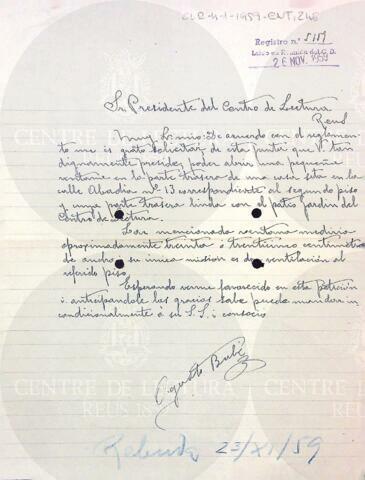 CLR-4-1-1959-ENT,246
Registro n.º 5157
26 NOV. 1959
Sr. Presidente del Centro de Lectura
Reus
Muy Sr. mio: De acuerdo con el reglamen-
to me es grato solicitar de esta junta que V. tan
dignamente preside, poder abrir una pequeña
ventana en la parte trasera de una casa sita en la
calle Abadia nº 13 correspondiente al segundo piso
y cuya parte trasera linda con el patio jardin del
Centro de Lectura.
La mencionada ventana mediria
aproximadamente treinta o treinta cinco centimetros
de ancho, su unica mission es de ventilación al
referido piso.
Esperando verme favorecido en esta petición
i anticipandole las gracias sabe puede mandar in
condicionalmente á su S.S. i consocio
23/XI/59
CENTRE DE LECTURA
REUS 1859